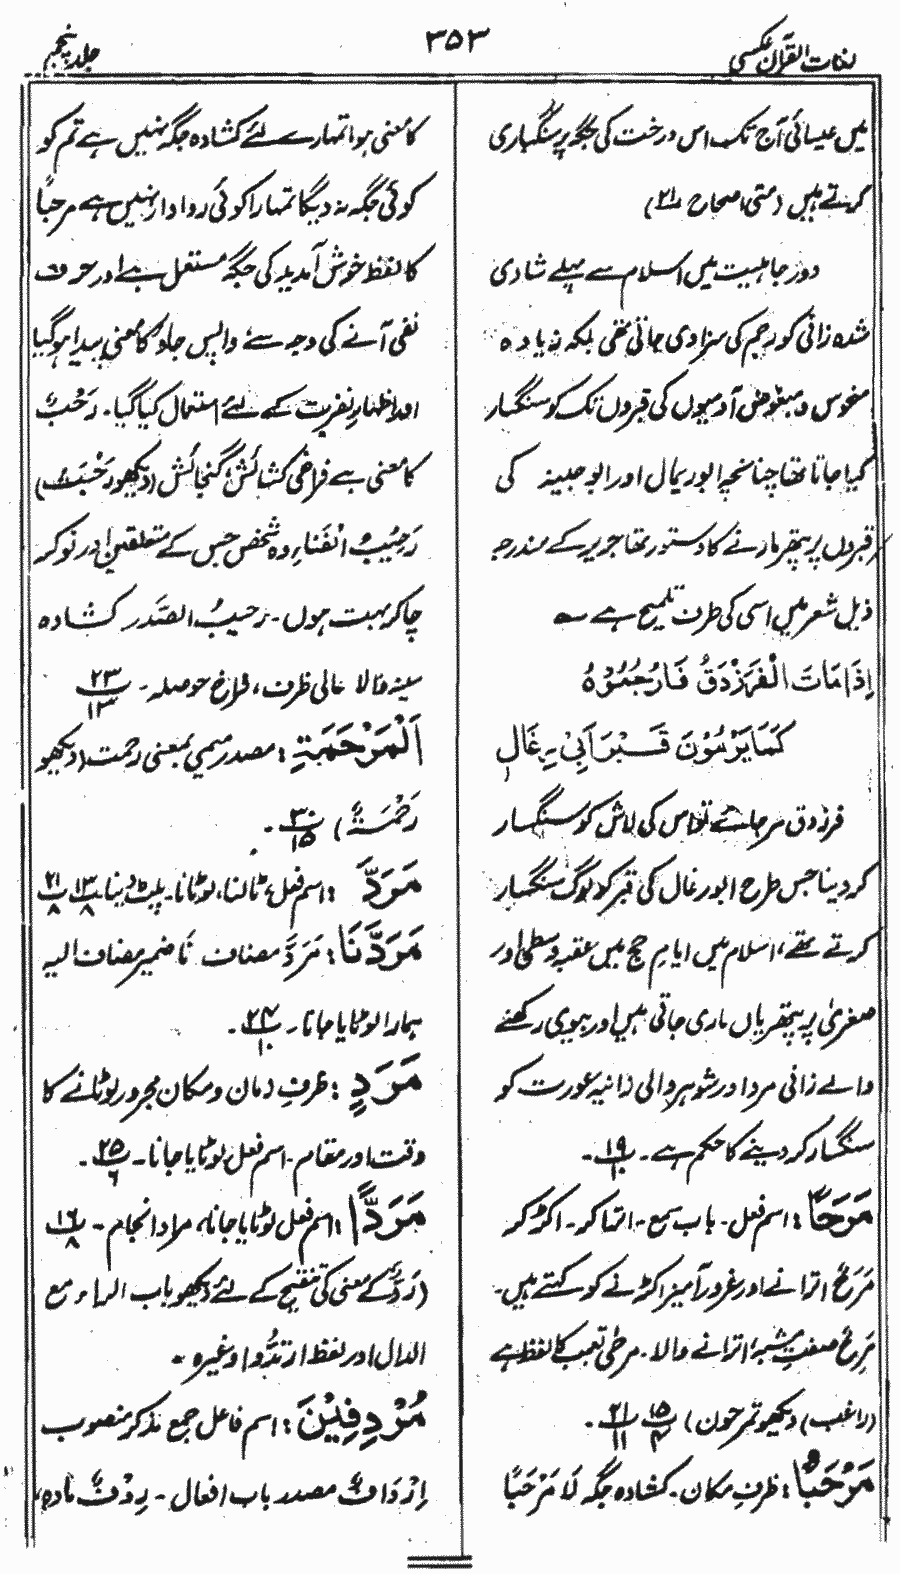 لغات القرآن عکسی
۳۵۳
جلد پنجم
میں عیسائی آج تک اس درخت کی جگہ پر سنگباری
کرتے ہیں (متی اصحاح ۲۱)
دور جاہلیت میں اسلام سے پہلے شادی
شدہ زانی کو رجم کی سزا دی جاتی تھی بلکہ زیادہ
مغوس و مبغوض آدمیوں کی قبروں تک کو سنگسار
کیا جاتا تھا چنانچہ ابور یمال اور ابو جبینہ کی
قبروں پر پتھر مارنے کا دستور تھا جریر کے مندرجہ
ذیل شعر میں اسی کی طرف تلمیح ہے ؎
اِذَا مَاتَ الْفَرَزْدَقُ فَارْجُمُوْهُ
كَمَا يَرْمُوْنَ قَبْرَ اَبِيْ رِغَالِ
فرزدق مرجائے تو اس کی لاش کو سنگسار
کردینا جس طرح ابورغال کی قبر کو لوگ سنگسار
کرتے تھے، اسلام میں ایام حج میں عقبہ وسطیٰ اور
صغریٰ پر پتھریاں ماری جاتی ہیں اور بیوی رکھنے
والے زانی مرد اور شوہر والی زانیہ عورت کو
سنگسار کردینے کا حکم ہے۔ ۱۹/۱۰۔
مَرَحًا: اسم فعل۔ باب سمع۔ اتنا کر۔ اکڑ کر
مَرَحٌ اترانے اور غرور آمیز اکڑنے کو کہتے ہیں۔
مَرِحٌ صفتِ مشبہ، اترانے والا۔ مرحیٰ تعجب کا لفظ ہے
(راغب) دیکھو تمرحون) ۱۵/۴ ۲۱/۱۱۔
مَرْحَبًا: ظرفِ مکان۔ کشادہ جگہ لَا مَرْحَبًا
کا معنی ہوا تمہارے لئے کشادہ جگہ نہیں ہے تم کو
کوئی جگہ نہ دیگا تمہارا کوئی روادار نہیں ہے مرحبًا
کا لفظ خوش آمدید کی جگہ مستعمل ہے اور حرف
نفی آنے کی وجہ سے واپس جاؤ کا معنی پیدا ہوگیا
اور اظہارِ نفرت کے لئے استعمال کیا گیا۔ رَحْبٌ
کا معنی ہے فراخی کشائش، گنجائش (دیکھو رَحُبَتْ)
رَحِیْبُ الْفَنَاءِ وہ شخص جس کے متعلقین اور نوکر
چاکر بہت ہوں۔ رحیبُ الصَّدر کشادہ
سینہ والا عالی ظرف، فراخ حوصلہ۔ ۲۳/۱۳
اَلْمَرْحَمَةِ: مصدر میمی بمعنی رحمت (دیکھو
رَحْمَةٌ) ۳۰/۱۵۔
مَرَدَّ: اسم فعل، ٹالنا، لوٹانا۔ پلٹ دینا ۱۳/۸ ۲۱/۸
مَرَدَّنَا: مَرَدَّ مضاف۔ نَا ضمیر مضاف الیہ
ہمارا لوٹایا جانا۔ ۲۴/۱۰۔
مَرَدٍّ: ظرفِ زمان و مکان مجرور لوٹانے کا
وقت اور مقام۔ اسم فعل لوٹایا جانا۔ ۲۵/۶۔
مَرَدًّا: اسم فعل لوٹایا جانا، مراد انجام۔ ۱۶/۸
(رَدٌّ کے معنی کی تنقیح کے لئے دیکھو باب الراء مع
الدال اور لفظ ارتدُّوا وغیرہ۔
مُرْدِفِیْنَ: اسم فاعل جمع مذکر منصوب
اِرْدَافٌ مصدر باب افعال۔ رِدْفٌ مادہ،